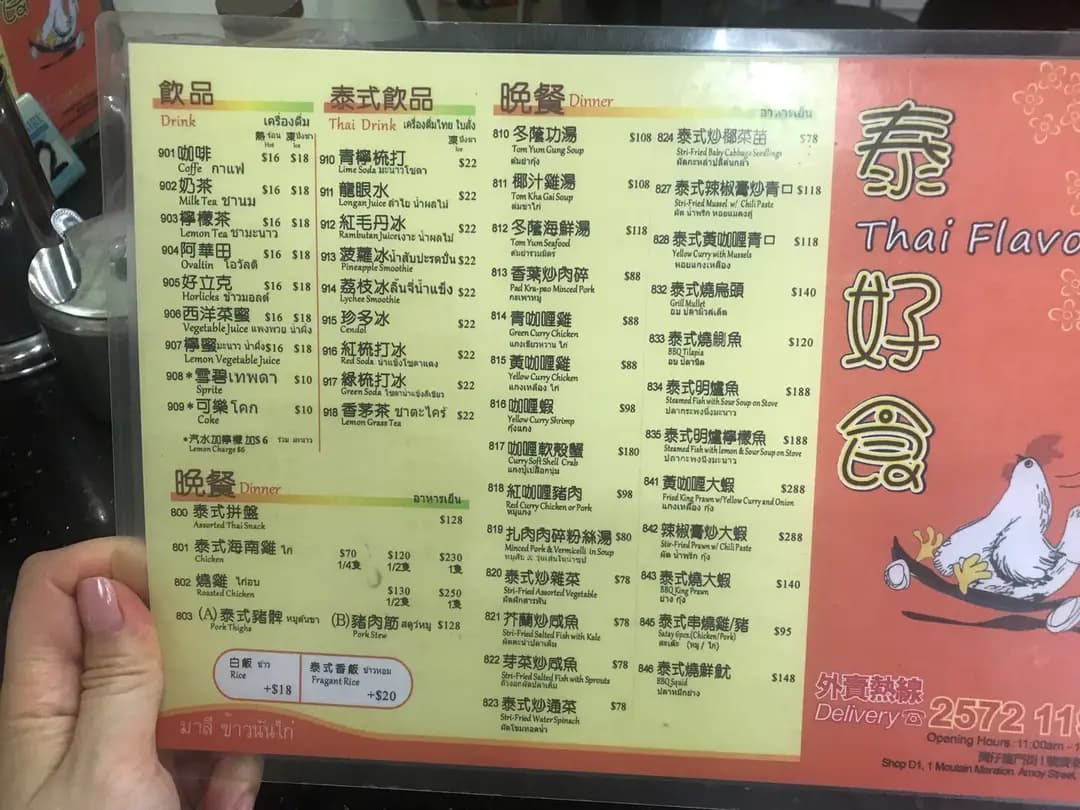 飲品
Drink เครื่องดื่ม
熱 ร้อน Hot 凍 Ice
901 咖啡 $16 $18
Coffe กาแฟ
902 奶茶 $16 $18
Milk Tea ชานม
903 檸檬茶 $16 $18
Lemon Tea ชามะนาว
904 阿華田 $16 $18
Ovaltin โอวัลติ
905 好立克 $16 $18
Horlicks ข้าวมอลต์
906 西洋菜蜜 $16 $18
Vegetable Juice
907 檸蜜 $16 $18
Lemon Vegetable Juice
908 * 雪碧 เทพดา $10
Sprite
909 * 可樂 โคก $10
Coke
*汽水加檸檬 加$6
Lemon Charge $6
泰式飲品
Thai Drink เครื่องดื่มไทย
凍 Ice
910 青檸梳打 $22
Lime Soda มะนาวโซดา
911 龍眼水 $22
Longan Juice ลำไย น้ำผลไม้
912 紅毛丹冰 $22
Rambutan Juice เงาะ น้ำผลไม้
913 菠蘿冰 น้ำสับปะรดปั่น $22
Pineapple Smoothie
914 荔枝冰 ลิ้นจี่น้ำแข็ง $22
Lychee Smoothie
915 珍多冰 $22
Cendol
916 紅梳打冰 $22
Red Soda น้ำแข็งโซดาแดง
917 綠梳打冰 $22
Green Soda โซดาน้ำแข็งสีเขียว
918 香茅茶 ชาตะไคร้ $22
Lemon Grass Tea
晚餐 Dinner อาหารเย็น
800 泰式拼盤 $128
Assorted Thai Snack
801 泰式海南雞 ไก่ $70 $120 $230
Chicken 1/4隻 1/2隻 1隻
802 燒雞 ไก่อบ $130 $250
Roasted Chicken 1/2隻 1隻
803 (A) 泰式豬髀 (B) 豬肉筋 $128
Pork Thighs Pork Stew
白飯 ข้าว
Rice
+$18
泰式香飯 ข้าวหอม
Fragrant Rice
+$20
มาลี ข้าวมันไก่
晚餐 Dinner อาหารเย็น
810 冬蔭功湯 $108
Tom Yum Gung Soup
ต้มยำกุ้ง
811 椰汁雞湯 $108
Tom Kha Gai Soup
ต้มข่าไก่
812 冬蔭海鮮湯 $118
Tom Yum Seafood
ต้มยำรวมมิตร
813 香葉炒肉碎 $88
Pad Kra-pao Minced Pork
กะเพาหมู
814 青咖喱雞 $88
Green Curry Chicken
แกงเขียวหวาน ไก่
815 黃咖喱雞 $88
Yellow Curry Chicken
แกงเหลือง ไก่
816 咖喱蝦 $98
Yellow Curry Shrimp
กุ้งแกง
817 咖喱軟殼蟹 $180
Curry Soft Shell Crab
แกงปูเปลือกนุ่ม
818 紅咖喱豬肉 $98
Red Curry Chicken or Pork
หมูแกง
819 扎肉肉碎粉絲湯 $80
Minced Pork & Vermicelli in Soup
820 泰式炒雜菜 $78
Stri-Fried Assorted Vegetable
ผัดผักสารพัน
821 芥蘭炒咸魚 $78
Stri-Fried Salted Fish with Kale
ผัดคะน้าปลาเค็ม
822 芽菜炒咸魚 $78
Stri-Fried Salted Fish with Sprouts
ถั่วงอกผัดปลาเค็ม
823 泰式炒通菜 $78
Stri-Fried Water Spinach
824 泰式炒椰菜苗 $78
Stri-Fried Baby Cabbage Seedlings
827 泰式辣椒膏炒青口 $118
Stri-Fried Mussel w/ Chili Paste
ผัด น้ำพริก หอยแมลงภู่
828 泰式黃咖喱青口 $118
Yellow Curry with Mussels
หอยแกงเหลือง
832 泰式燒烏頭 $140
Grill Mullet
833 泰式燒鯽魚 $120
BBQ Tilapia
อบ ปลานิล
834 泰式明爐魚 $188
Steamed Fish with Sour Soup on Stove
ปลากระพงนึ่งมะนาว
835 泰式明爐檸檬魚 $188
Steamed Fish with lemon & Sour Soup on Stove
ปลากะพงนึ่งมะนาว
841 黃咖喱大蝦 $288
Fried King Prawn w/Yellow Curry and Onion
แกงเหลือง กุ้ง
842 辣椒膏炒大蝦 $288
Stir-Fried Prawn w/ Chili Paste
ผัด น้ำพริก กุ้ง
843 泰式燒大蝦 $140
BBQ King Prawn
ย่าง กุ้ง
845 泰式串燒雞/豬 $95
Satay 6pcs.(Chicken/Pork)
สะเต๊ะ (หมู / ไก่)
846 泰式燒鮮魷 $148
BBQ Squid
ปลาหมึกย่าง
泰好食
Thai Flavo
外賣熱線
Delivery ☎ 2572 118
Opening Hours : 11:00am -
Shop D1, 1 Moutain Mansion Amoy Street,